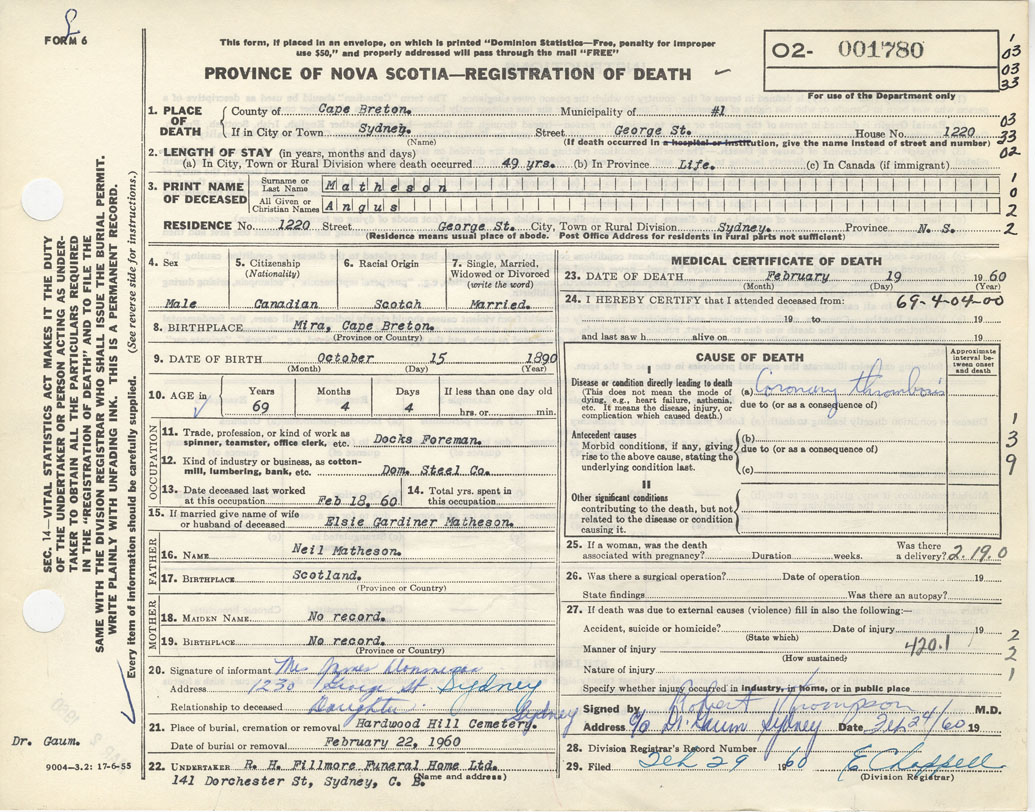 FORM 6
This form, if placed in an envelope, on which is printed "Dominion Statistics—Free, penalty for improper
use $50," and properly addressed will pass through the mail "FREE"
PROVINCE OF NOVA SCOTIA—REGISTRATION OF DEATH
O2- 001780
For use of the Department only
1
03
03
33
1. PLACE OF DEATH County of Cape Breton. Municipality of #1
If in City or Town Sydney. Street George St. House No. 1220
(Name) (If death occurred in a hospital or institution, give the name instead of street and number)
03
33
02
2. LENGTH OF STAY (in years, months and days)
(a) In City, Town or Rural Division where death occurred. 49 yrs. (b) In Province Life. (c) In Canada (if immigrant)
3. PRINT NAME OF DECEASED
Surname or Last Name Matheson
All Given or Christian Names Angus
1
0
2
2
RESIDENCE No. 1220 Street George St. City, Town or Rural Division Sydney. Province N. S.
(Residence means usual place of abode. Post Office Address for residents in rural parts not sufficient)
4. Sex
Male
5. Citizenship
(Nationality)
Canadian
6. Racial Origin
Scotch
7. Single, Married,
Widowed or Divorced
(write the word)
Married.
8. BIRTHPLACE Mira, Cape Breton.
(Province or Country)
9. DATE OF BIRTH October 15 1890
(Month) (Day) (Year)
10. AGE in Years 69 Months 4 Days 4 If less than one day old
hrs. or min.
OCCUPATION
11. Trade, profession, or kind of work as
spinner, teamster, office clerk, etc. Docks Foreman.
12. Kind of industry or business, as cotton-
mill, lumbering, bank, etc. Dom. Steel Co.
13. Date deceased last worked
at this occupation Feb 18, 60
14. Total yrs. spent in
this occupation.
15. If married give name of wife
or husband of deceased Elsie Gardiner Matheson.
FATHER
16. NAME Neil Matheson.
17. BIRTHPLACE Scotland.
(Province or Country)
MOTHER
18. MAIDEN NAME No record.
19. BIRTHPLACE No record.
(Province or Country)
20. Signature of informant Mrs James
Address 1230 George St Sydney
Relationship to deceased Daughter
21. Place of burial, cremation or removal Hardwood Hill Cemetery. Sydney
Date of burial or removal February 22, 1960
22. UNDERTAKER R. H. Fillmore Funeral Home Ltd.
141 Dorchester St, Sydney, C. B.
(Name and address)
MEDICAL CERTIFICATE OF DEATH
23. DATE OF DEATH February 19 1960
(Month) (Day) (Year)
24. I HEREBY CERTIFY that I attended deceased from: 69-4-04-00
19 to 19
and last saw h alive on 19
CAUSE OF DEATH
Approximate
interval be-
tween onset
and death
I
Disease or condition directly leading to death
(This does not mean the mode of
dying, e.g., heart failure, asthenia,
etc. It means the disease, injury, or
complication which caused death.)
(a) Coronary thrombosis
due to (or as a consequence of)
Antecedent causes
Morbid conditions, if any, giving
rise to the above cause, stating the
underlying condition last.
(b)
due to (or as a consequence of)
(c)
II
Other significant conditions
contributing to the death, but not
related to the disease or condition
causing it.
1
3
9
25. If a woman, was the death
associated with pregnancy? Duration weeks. Was there
a delivery? 2.19.0
26. Was there a surgical operation? Date of operation 19
State findings Was there an autopsy?
27. If death was due to external causes (violence) fill in also the following:—
Accident, suicide or homicide? Date of injury 19
(State which)
Manner of injury 420.1
(How sustained)
Nature of injury
Specify whether injury occurred in industry, in home, or in public place
2
2
1
Signed by Robert Thompson M.D.
Address c/o Dr Gaum Sydney Date Feb 24/60 19
28. Division Registrar's Record Number
29. Filed Feb 29 1960 E Chappell
(Division Registrar)
SEC. 14—VITAL STATISTICS ACT MAKES IT THE DUTY
OF THE UNDERTAKER OR PERSON ACTING AS UNDER-
TAKER TO OBTAIN ALL THE PARTICULARS REQUIRED
IN THE "REGISTRATION OF DEATH" AND TO FILE THE
SAME WITH THE DIVISION REGISTRAR WHO SHALL ISSUE THE BURIAL PERMIT.
WRITE PLAINLY WITH UNFADING INK. THIS IS A PERMANENT RECORD.
Every item of information should be carefully supplied. (See reverse side for instructions.)
Dr. Gaum.
9004-3.2: 17-6-55